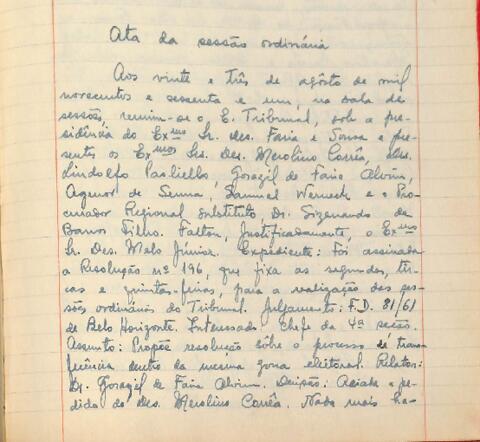 Ata da sessão ordinária
Aos vinte e três de agôsto de mil
novecentos e sessenta e um, na sala de
sessões, reuniu-se o E. Tribunal, sob a pre-
sidência do Exmo Sr. Des. Faria e Sousa e pre-
sentes os Exmos Srs. Des. Merolino Corrêa, Drs.
Lindolfo Paoliello, Gorazil de Faria Alvim,
Agenor de Senna, Samuel Werneck e o Pro-
curador Regional Substituto, Dr. Sizenando de
Barros Filho. Faltou, justificadamente, o Exmo
Sr. Des. Melo Júnior. Expediente: Foi assinada
a Resolução nº 196, que fixa as segundas, ter-
ças e quintas-feiras, para a realização das ses-
sões ordinárias do Tribunal. Julgamento: F.D. 81/61
de Belo Horizonte. Interessado Chefe da 4ª secão.
Assunto: Propõe resolução sôbre o processo de trans-
ferência dentro da mesma zona eleitoral. Relator:
Dr. Gorazil de Faria Alvim. Decisão: Adiada a pe-
dido do Des. Merolino Corrêa. Nada mais ha-